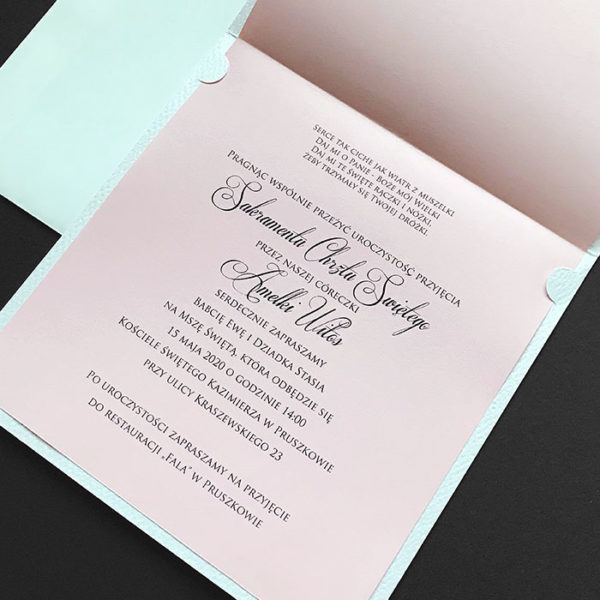 Serce tak ciche jak wiatr z muszelki
Daj mi o Panie - Boże mój wielki
Daj mi te święte rączki i nóżki,
Żeby trzymały się Twojej dróżki.
Pragnąc wspólnie przeżyć uroczystość przyjęcia
Sakramentu Chrztu Świętego
przez naszej córeczki
Amelki Witos
serdecznie zapraszamy
Babcię Ewę i Dziadka Stasia
na Mszę Świętą, która odbędzie się
15 maja 2020 o godzinie 14:00
Kościele Świętego Kazimierza w Pruszkowie
przy ulicy Kraszewskiego 23
Po uroczystości zapraszamy na przyjęcie
do restauracji „Fala” w Pruszkowie